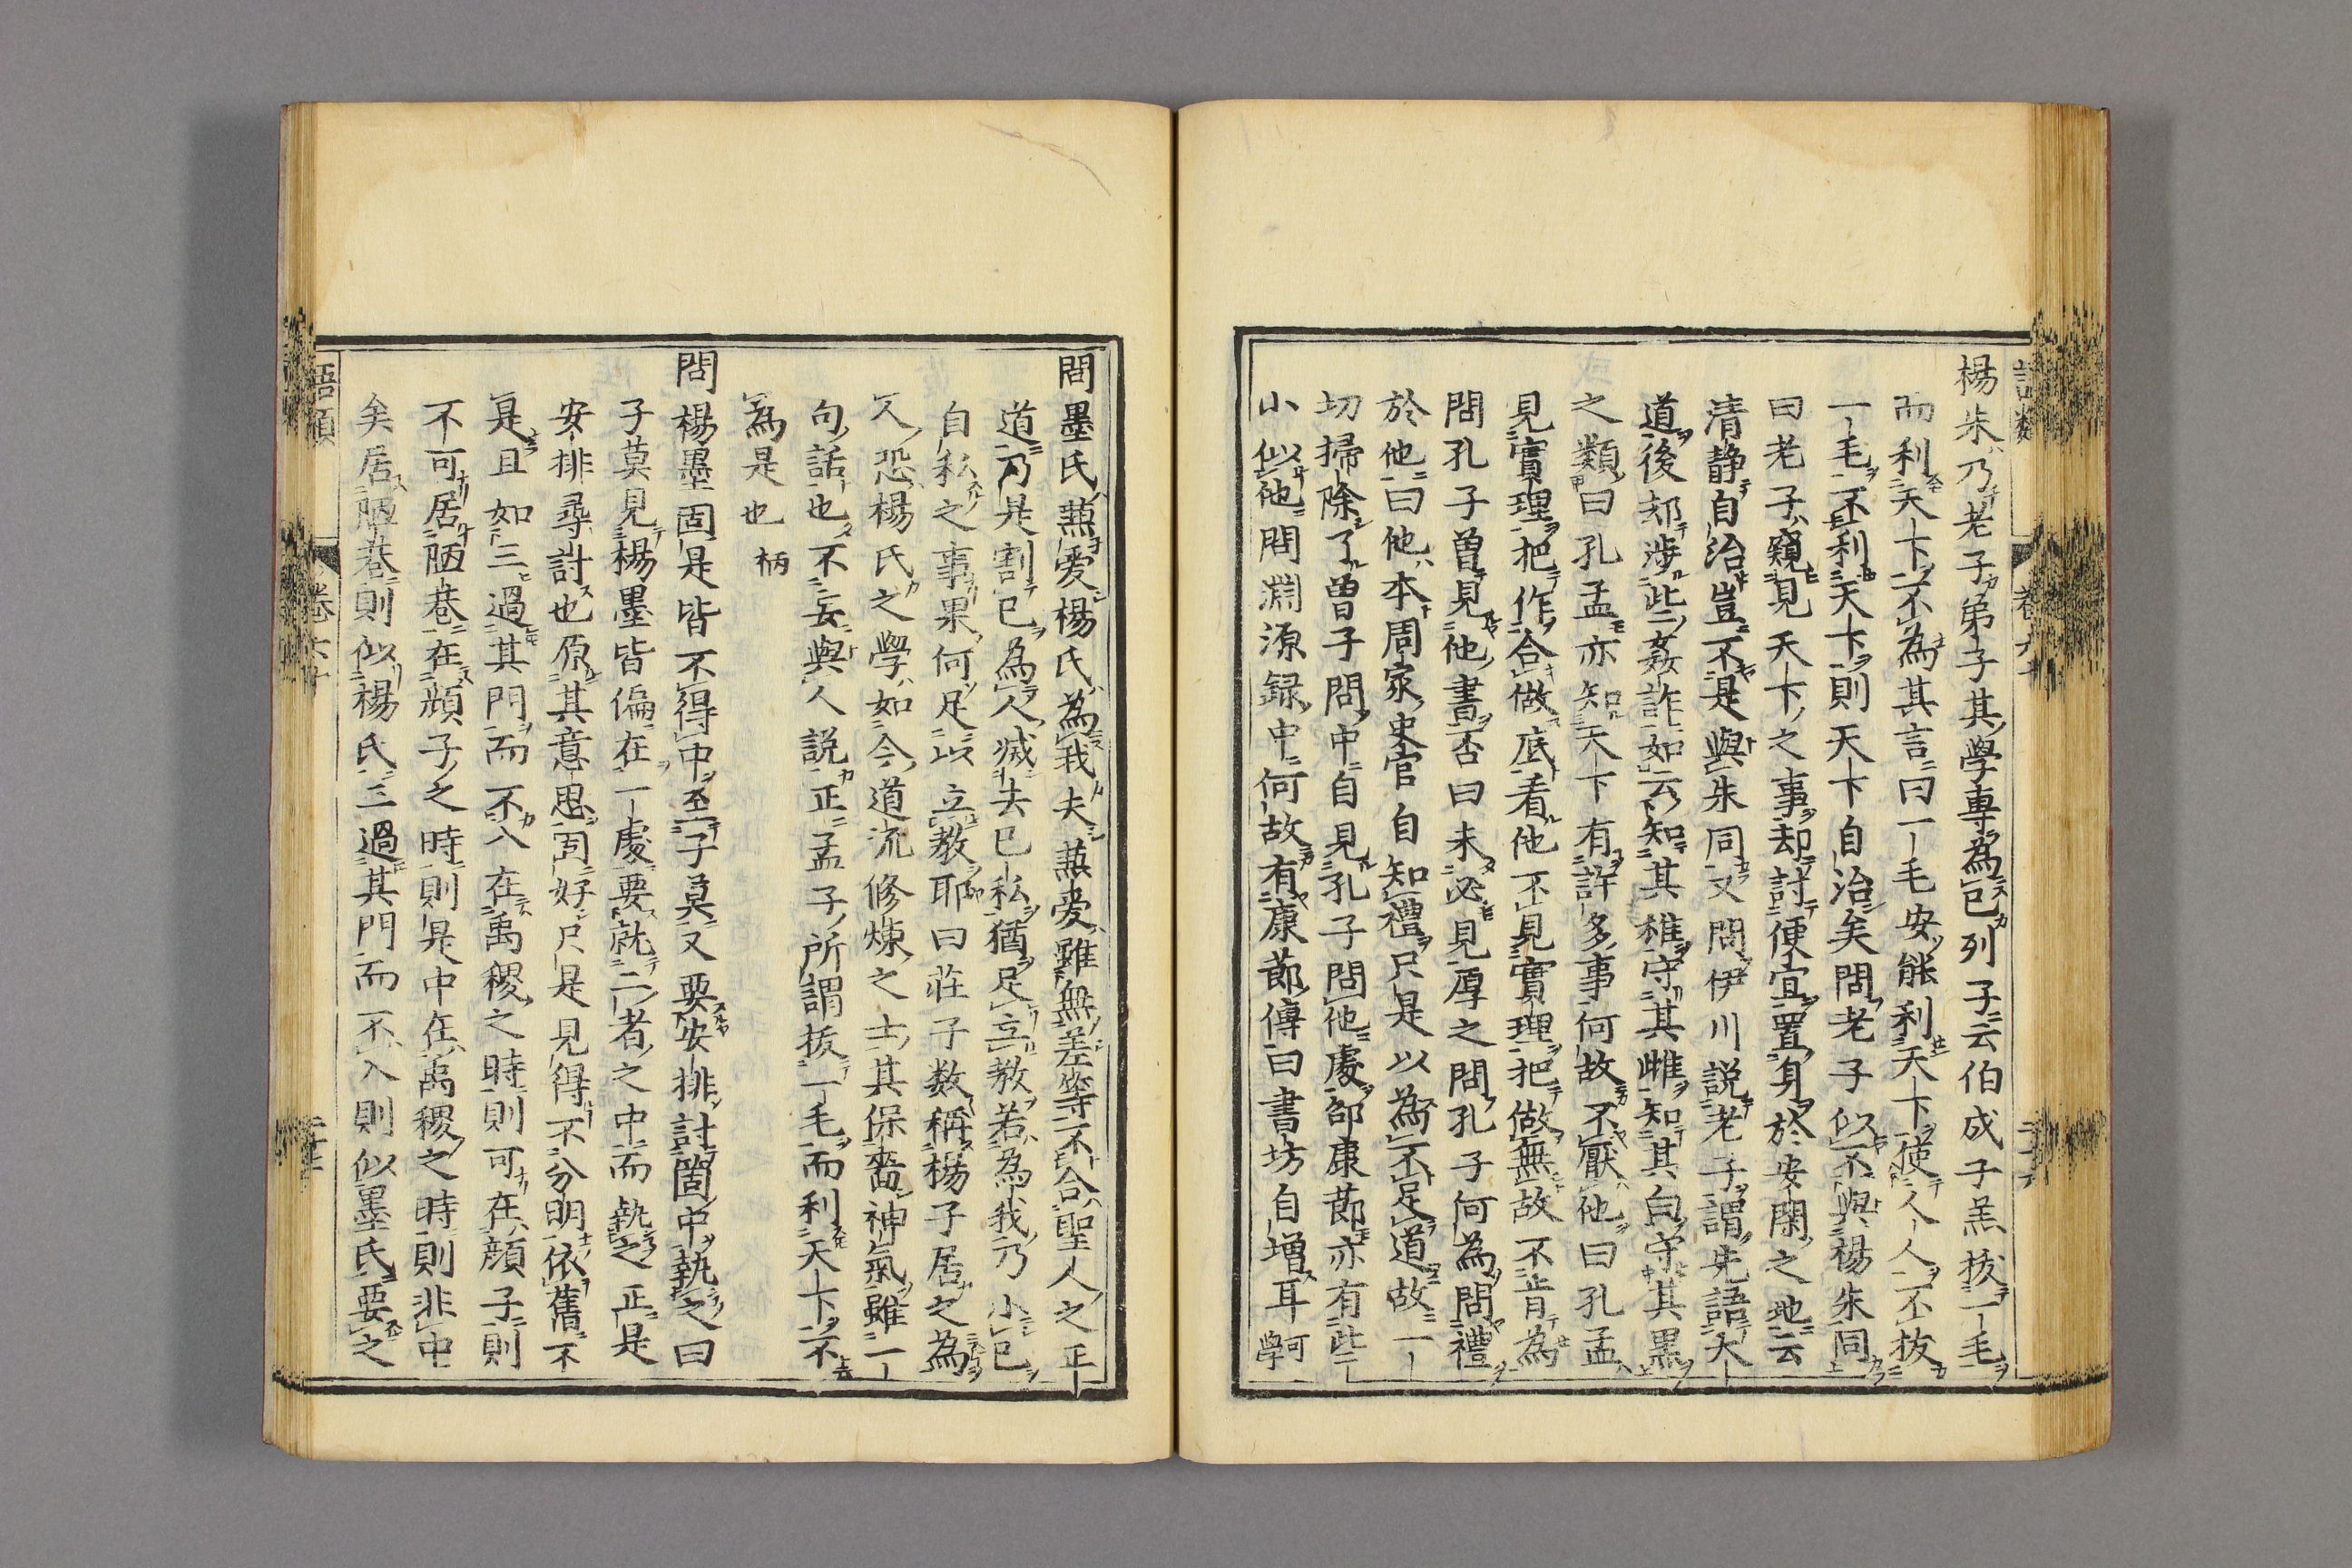 楊朱乃老子弟子其學專為已列子云伯成子羔拔一毛
而利天下不為其言曰一毛安能利天下使人人不拔
一毛不利天下則天下自治矣問老子似不與楊朱同
曰老子窺見天下之事却討便宜置身於安閑之地云
清静自治豈不是與朱同又問伊川說老子謂先語大
道後却渉些姦詐如云知其椎守其雌知其白守其黒
之類曰孔孟亦知天下有許多事何故不厭他曰孔孟
見實理把作合做底看他不見實理把做無故不肯為
問孔子曽見他書否曰未必見厚之問孔子何為問禮
於他曰他本周家史官自知禮只是以為不足道故一
切掃除了曽子問中自見孔子問他處邵康莭亦有些
小似他問淵源録中何故有康莭傳曰書坊自増耳 可學
問墨氏蒸愛楊氏為我夫蒸愛雖無差等不合聖人之正
道乃是割已為人滅去已私猶足立教若為我乃小已
自私之事果何足以立教耶曰荘子数稱楊子居之為
人恐楊氏之學如今道流修煉之士其保嗇神氣雖一
句話也不妄與人說正孟子所謂拔一毛而利天下不
為是也 柄
問楊墨固是皆不得中至子莫又要安排討箇中執之曰
子莫見楊墨皆偏在一處要就二者之中而執之正是
安排尋討也原其意思固好只是見得不分明依舊不
是且如三過其門而不入在禹稷之時則可在顔子則
不可居陋巷在顔子之時則是中在禹稷之時則非中
矣居陋巷則似楊氏三過其門而不入則似墨氏要之
語類
卷六十